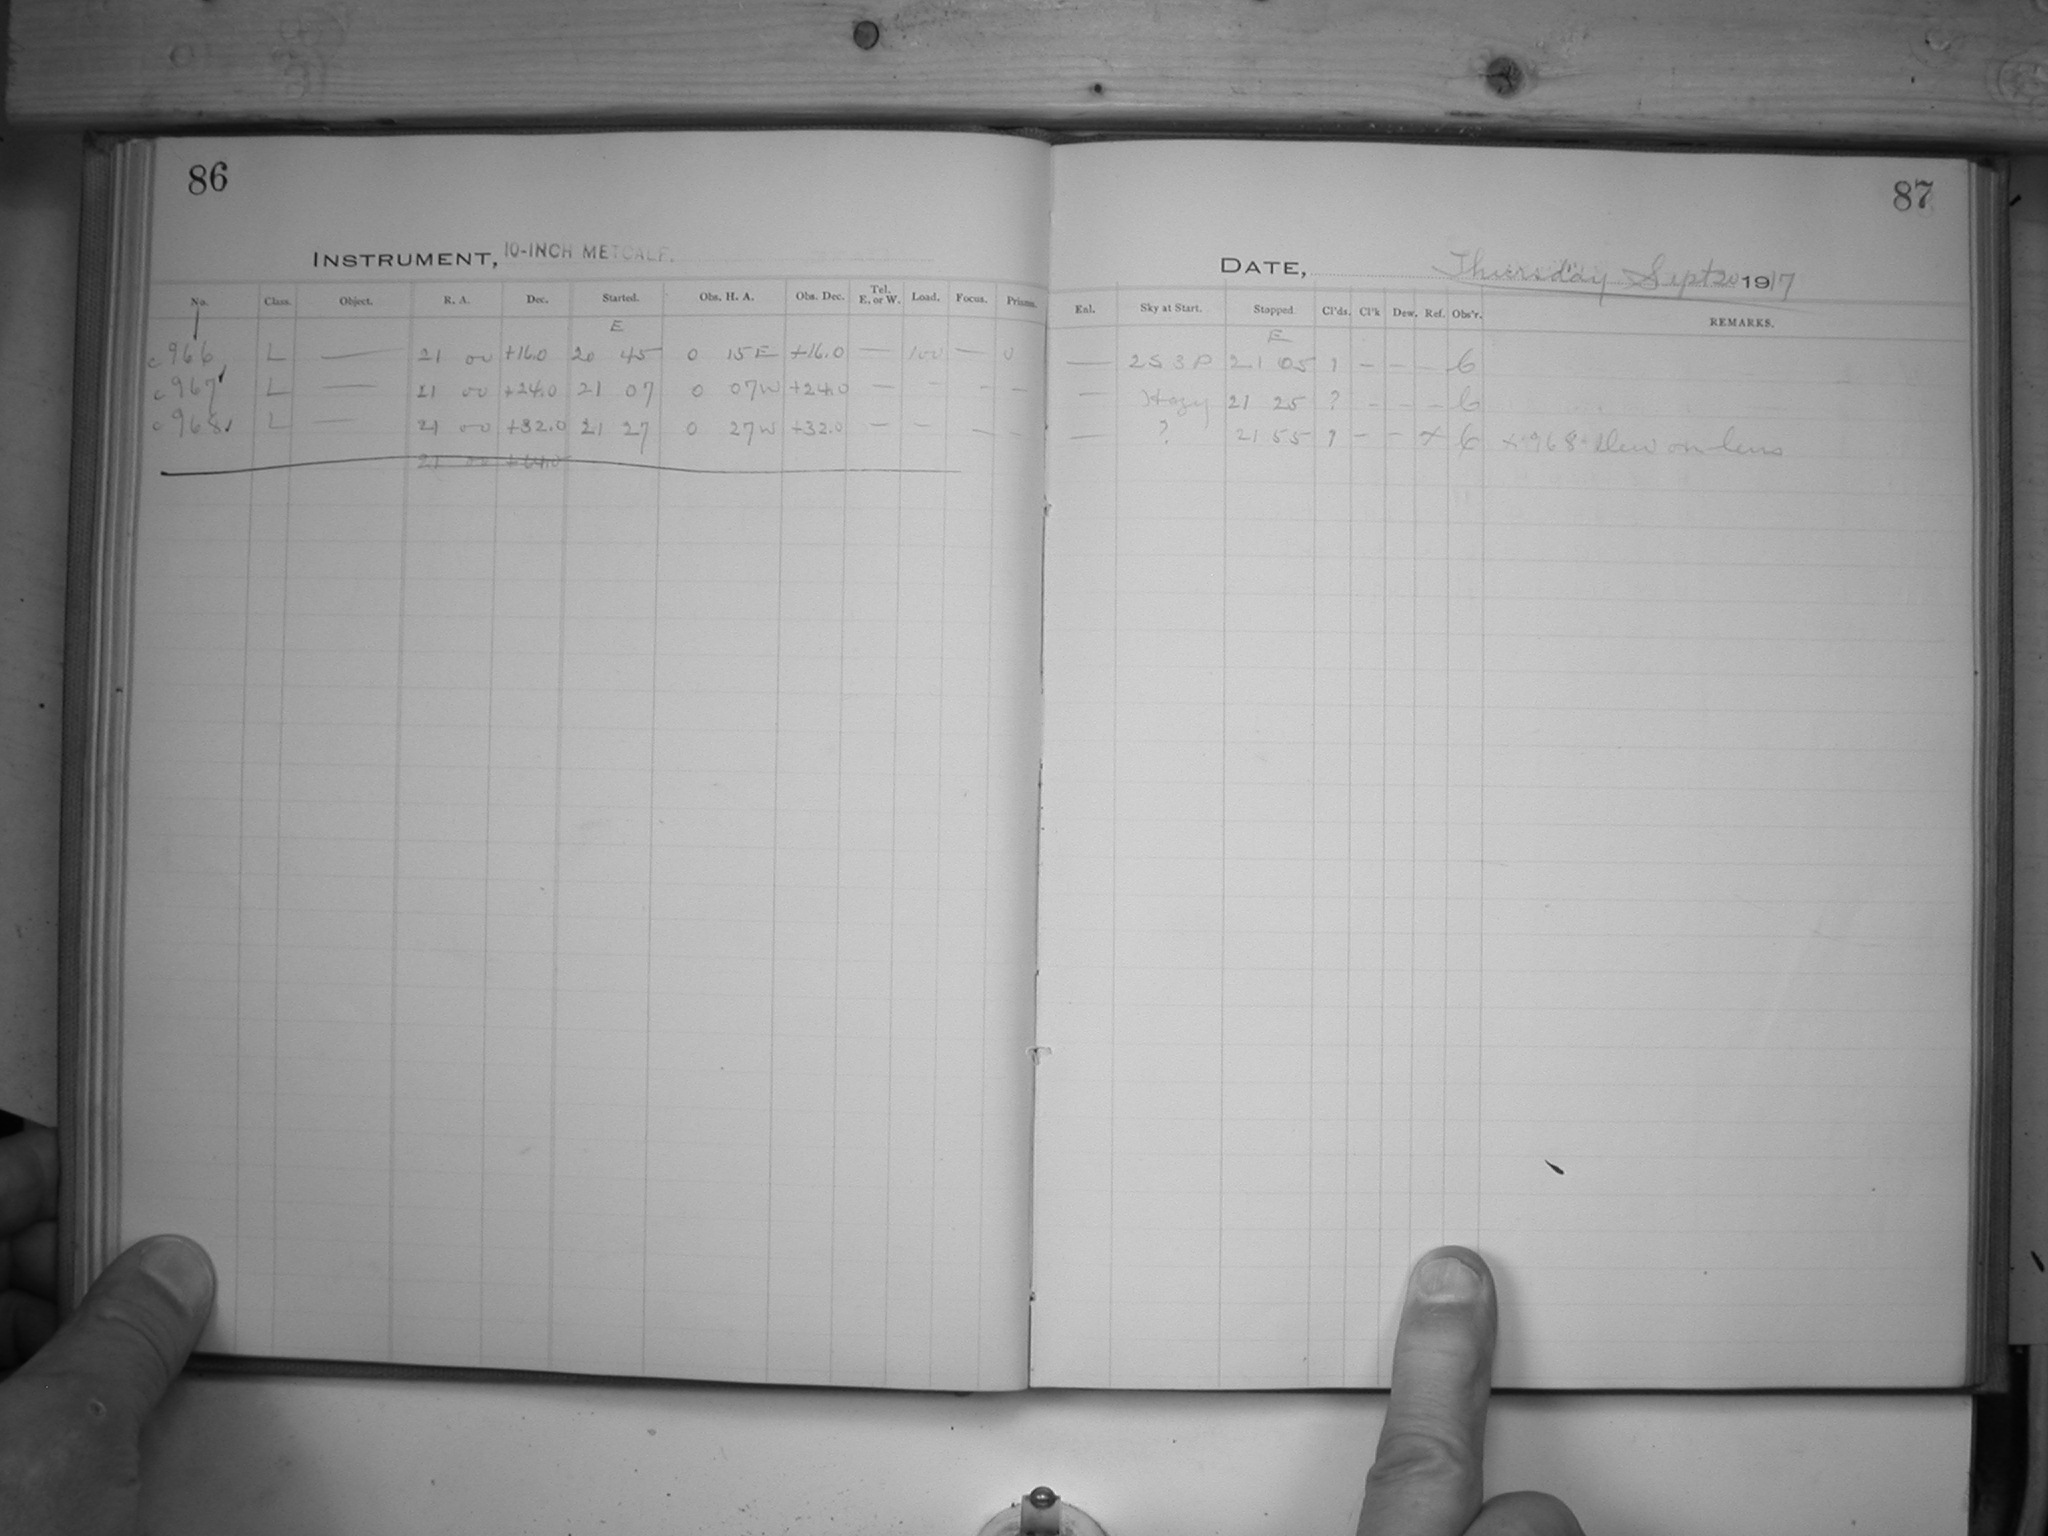 86
INSTRUMENT, 10-INCH METCALF.
No. Class. Object. R. A. Dec. Started. Obs. H. A. Obs. Dec. Tel. E. or W. Load. Focus. Prisms.
E
c 966 L — 21 00 +16.0 20 45 0 15 E +16.0 — 100 — 0
c 967 L — 21 00 +24.0 21 07 0 07 W +24.0 — – – –
c 968 L — 21 00 +32.0 21 27 0 27 W +32.0 — – – –
21 00
87
DATE, Thursday Sept 20 1917
Enl. Sky at Start. Stopped. Cl'ds. Cl'k Dew. Ref. Obs'r. REMARKS.
E
— 2S 3P 21 05 ? – – – 6
— Hazy 21 25 ? – – – 6
— ? 21 55 ? – – x 6 x 968 Dew on lens